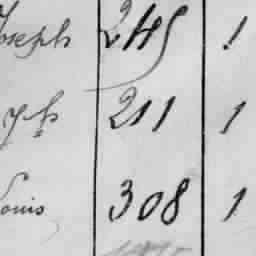 Joseph 245 1
Jh 211 1
Louis 308 1